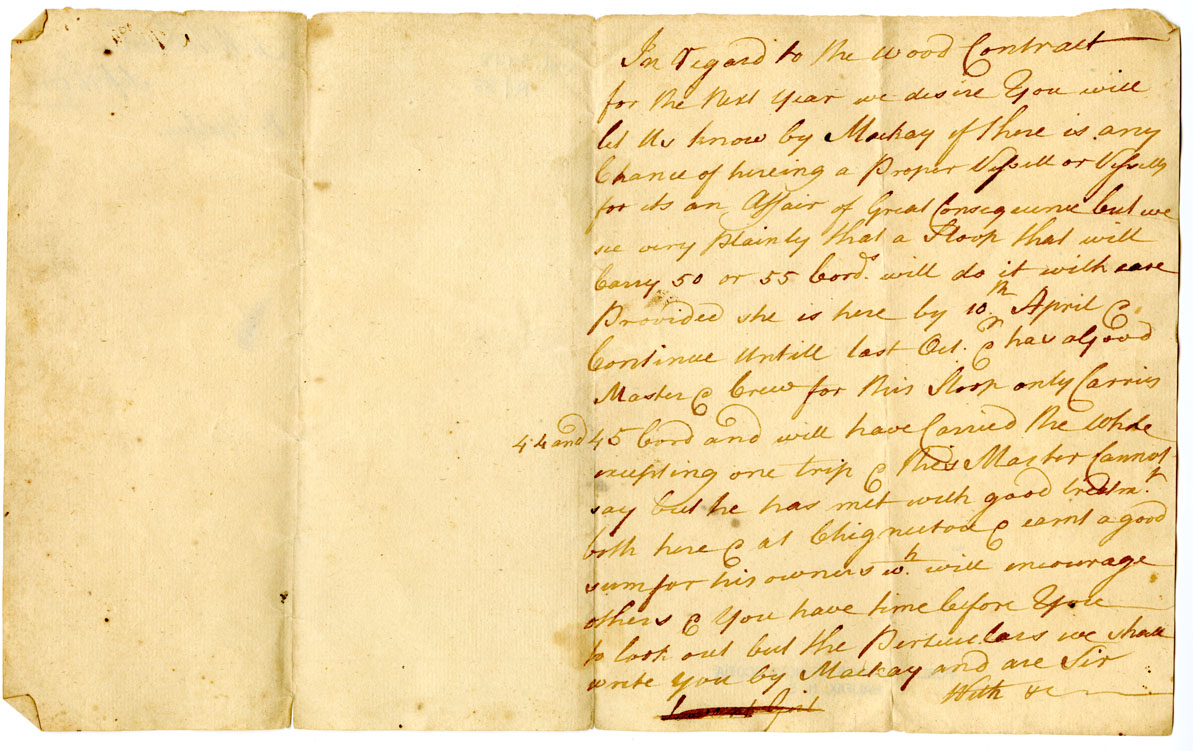 In regard to the Wood Contract
for the next Year we desire You will
let Us know by Mackay if there is any
Chance of hireing a Proper Vessell or Vessells
for its an Affair of Great Consequence but we
see very Plainly that a Sloop that will
Carry 50 or 55 Cords. will do it with ease
Provided she is here by 10th April &
Continue Untill last Oct. & has a Good
Master & Crew for this Sloop only Carries
44 and 45 Cord and will have Carried the Whole
excepting one trip & this Master Cannot
say but he has met with good treatmt
both here & at Chignectou & earnt a good
sum for his owners wh. will encourage
others & You have time before You
to look out but the Perticulars we shall
write You by Mackay and are Sir
With &c